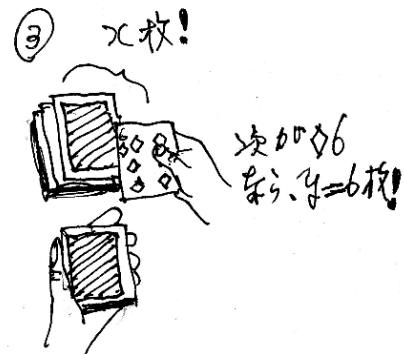 ③ x枚!
次が◇6
なら、y=6枚!